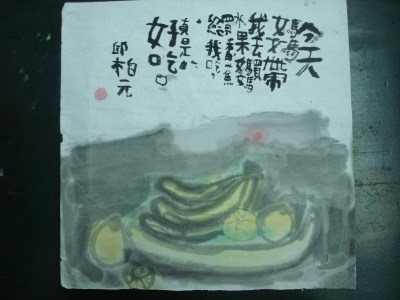 今天
媽媽帶
我去買
水果媽媽
買香蕉
給我吃,
真是
好吃
邱柏元